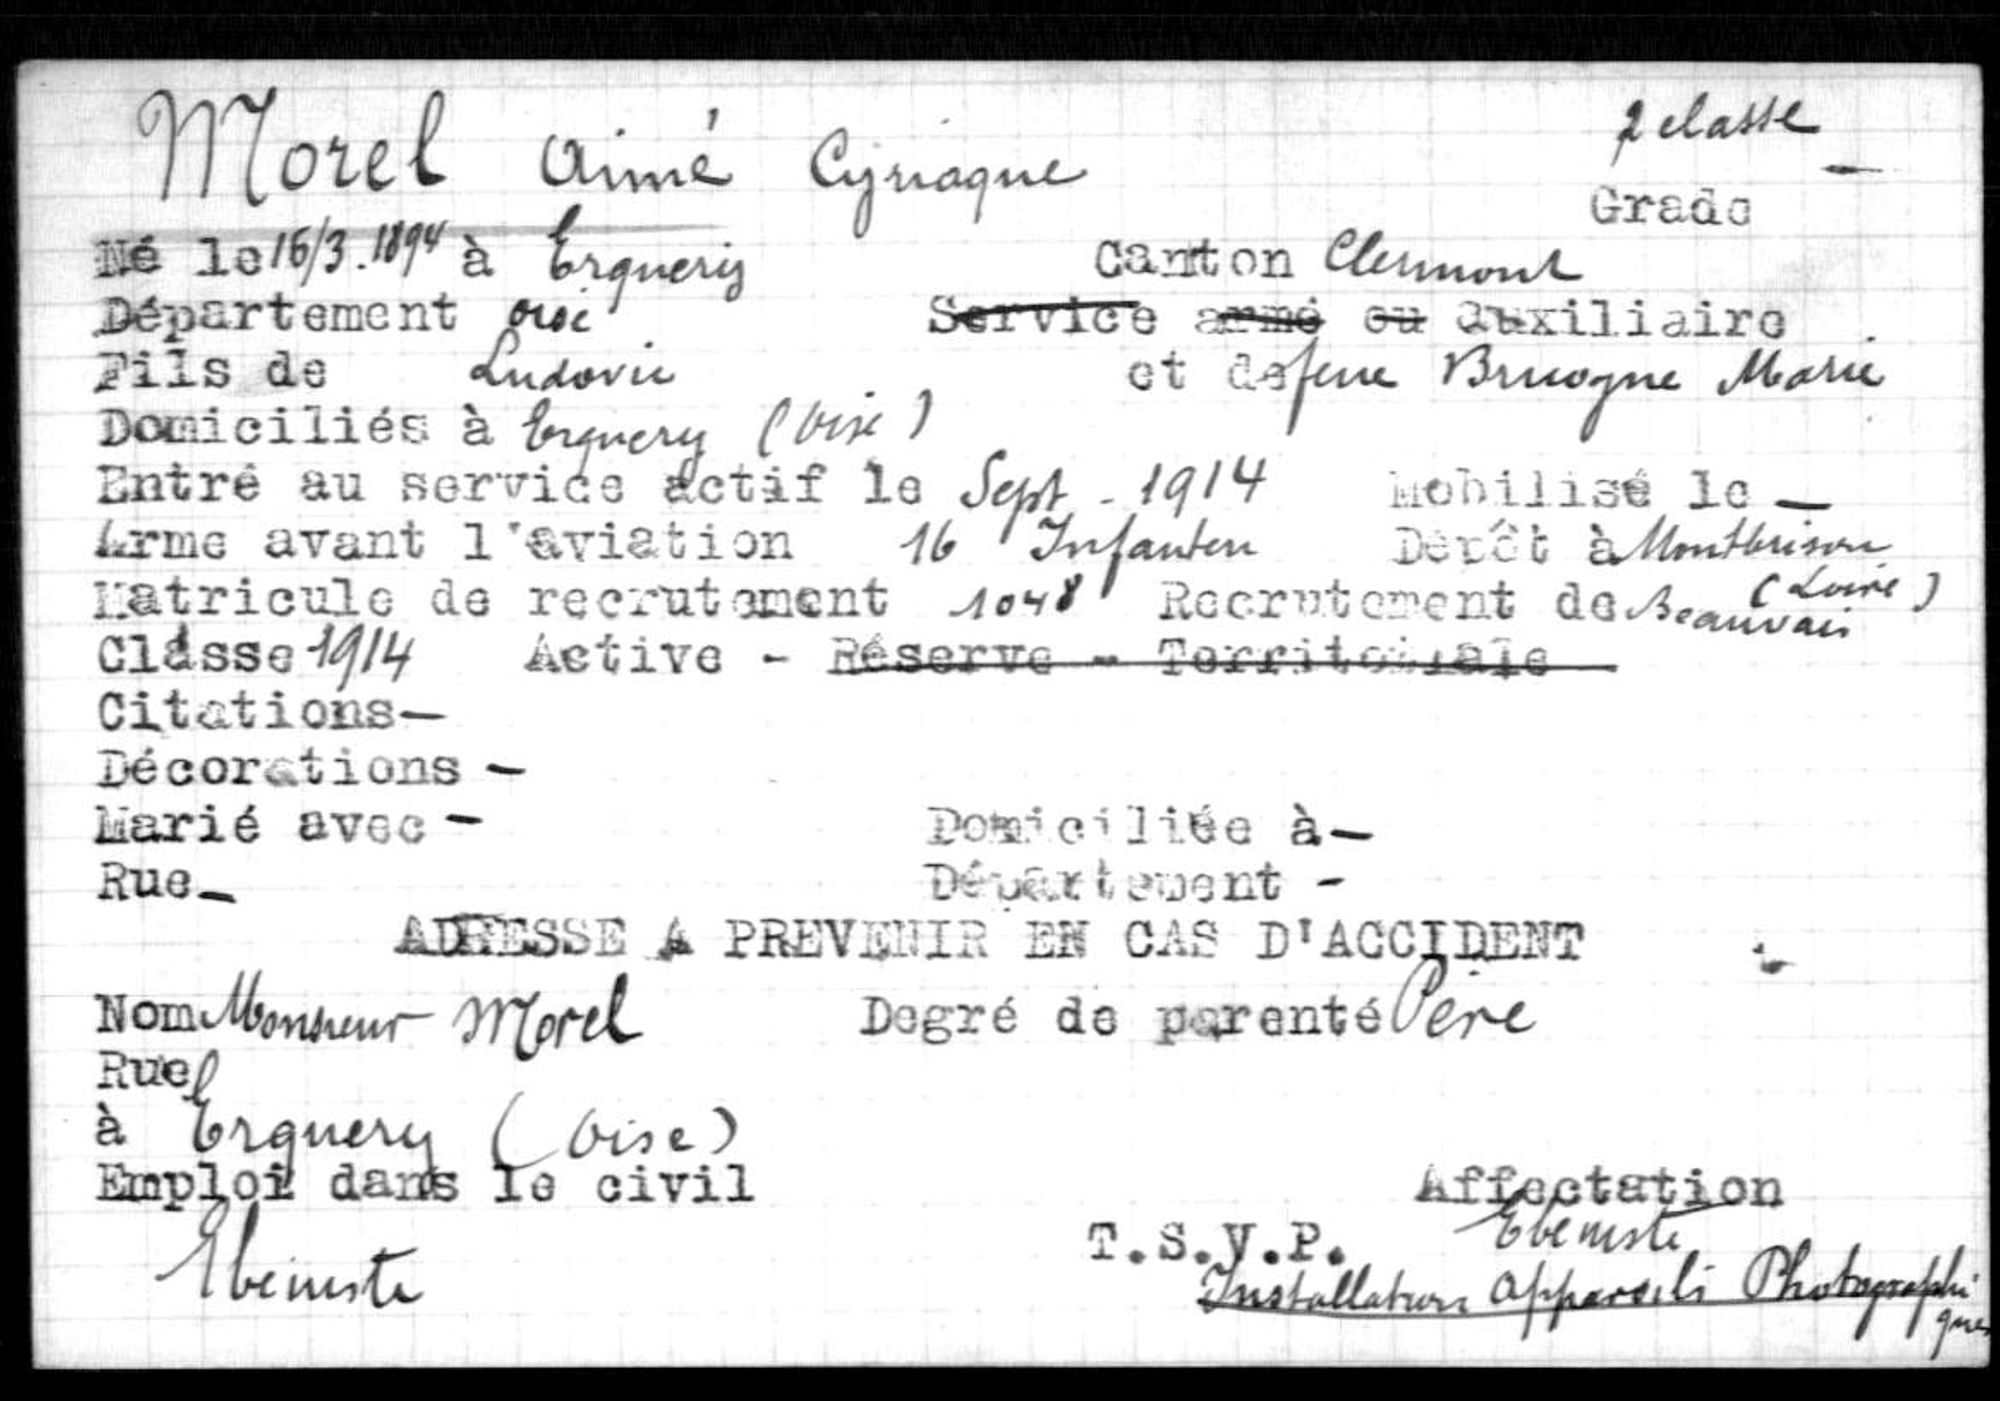 Morel Aimé Cyriaque
2 classe
Grade
Né le 16/3.1894 à Erquery Canton Clermont
Département oise Service armé ou Auxiliaire
Fils de Ludovic et de feue Bruogne Marie
Domiciliés à Erquery (Oise)
Entré au service actif le Sept - 1914 Mobilisé le —
Arme avant l'aviation 16 Infanterie Dépôt à Montbrison (Loire)
Matricule de recrutement 1048 Recrutement de Beauvais
Classe 1914 Active - Réserve - Territoriale
Citations —
Décorations —
Marié avec - Domiciliée à —
Rue — Département -
ADRESSE A PREVENIR EN CAS D'ACCIDENT
Nom Monsieur Morel Degré de parenté Père
Rue
à Erquery (Oise)
Emploi dans le civil Affectation
Ebéniste T.S.V.P. Ebéniste
Installation Appareils Photographiques